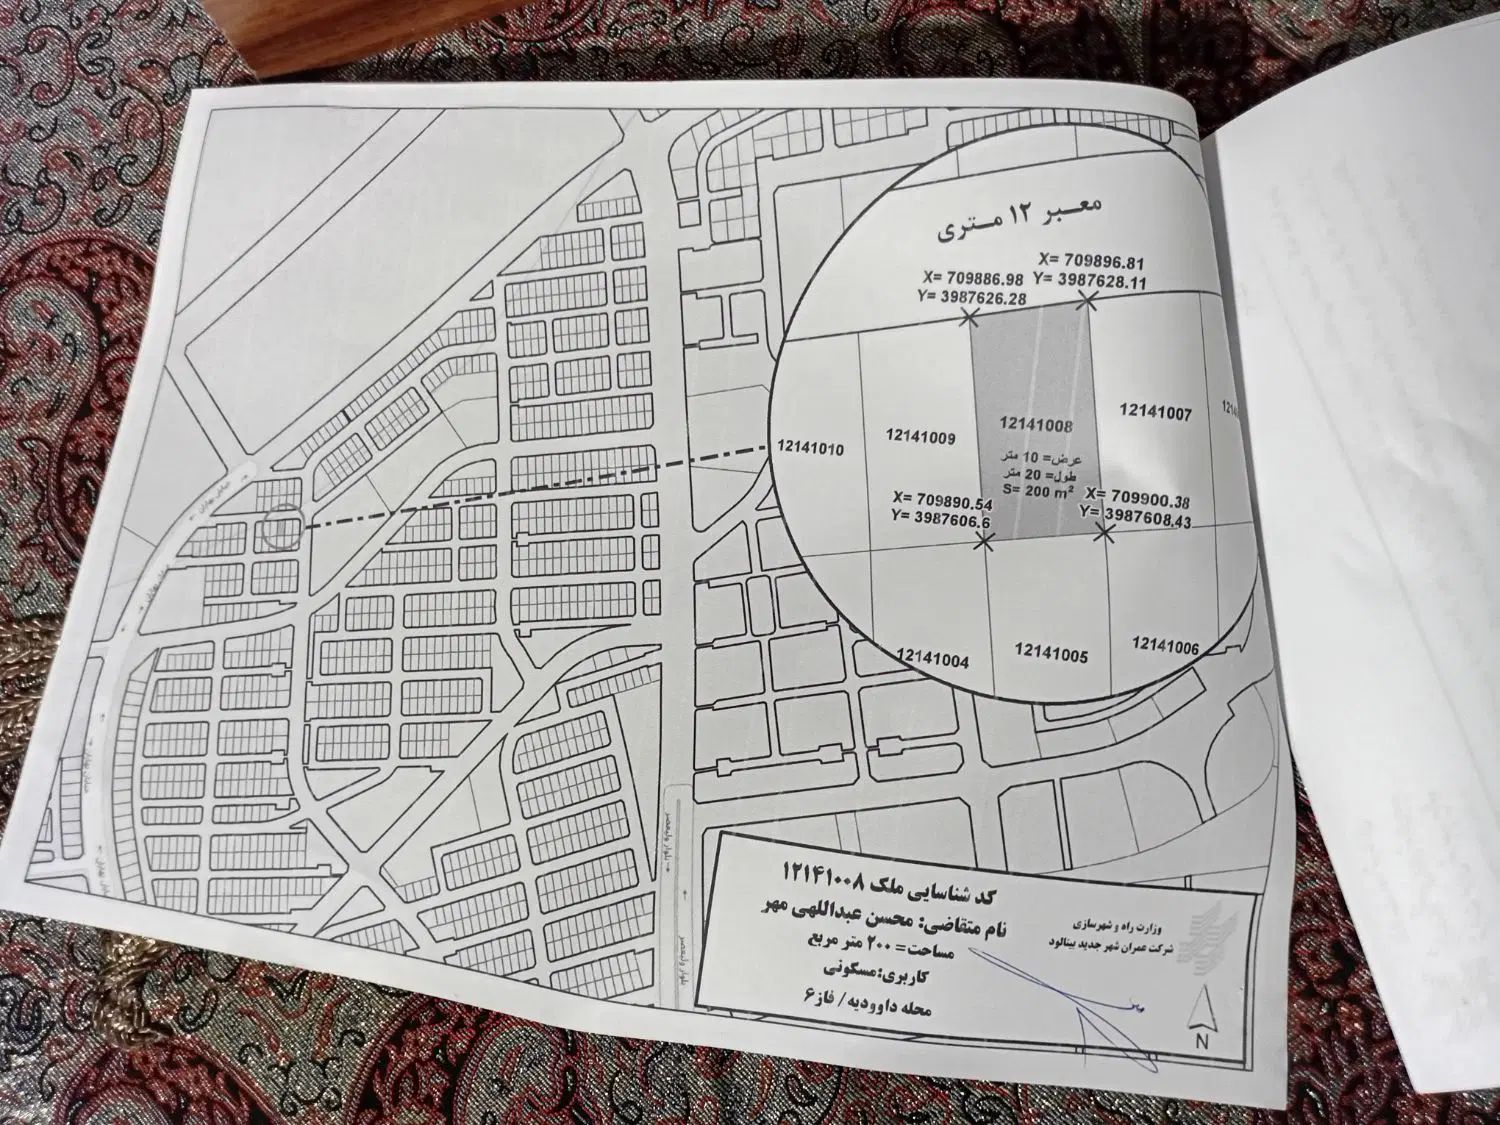 معبر ۱۲ متری
X= 709896.81
Y= 3987628.11
X= 709886.98
Y= 3987626.28
12141010
12141009
12141008
12141007
عرض= 10 متر
طول= 20 متر
S= 200 m²
X= 709890.54
Y= 3987606.6
X= 709900.38
Y= 3987608.43
12141004
12141005
12141006
کد شناسایی ملک ۱۲۱۴۱۰۰۸
نام متقاضی: محسن عبداللهی مهر
مساحت= ۲۰۰ متر مربع
کاربری: مسکونی
محله داوودیه/ فاز۶
وزارت راه و شهرسازی
شرکت عمران شهر جدید بینالود
N